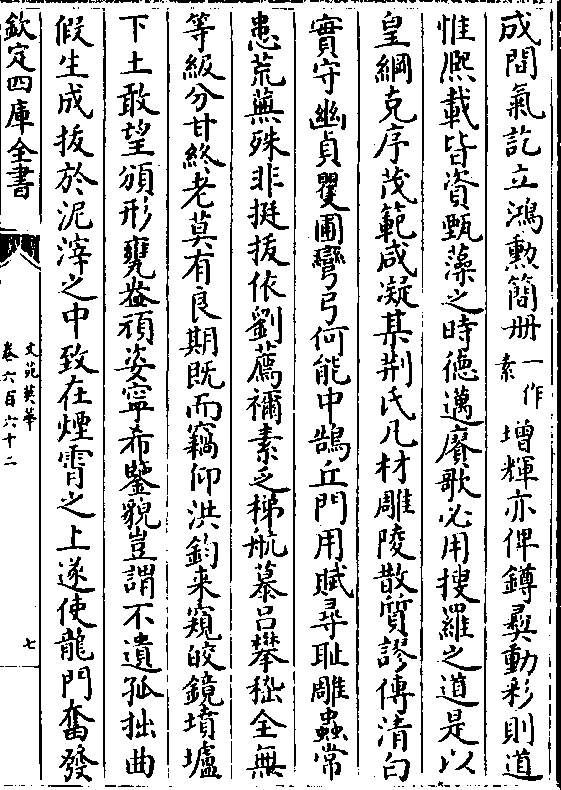 成間氣訖立鴻勲簡册一作素增輝亦俾鐏彛動彩則道
惟熈載皆資甄藻之時徳邁賡歌必用搜羅之道是以
皇綱克序茂範咸凝某荆氏凡材雕陵散質謬傳清白
實守幽貞瞿圃彎弓何能中鵠丘門用賦尋恥雕蟲常
患荒蕪殊非挺拔依劉薦禰素乏梯航慕吕攀嵇全無
等級分甘終老莫有良期既而竊仰洪鈞来窺皎鏡墳壚
下土敢望頒形甕㼜頑姿寧希鑒貌豈謂不遺孤拙曲
假生成拔於泥滓之中致在煙霄之上遂使龍門奮發
欽定四庫全書
文苑英華
卷六百六十二
七